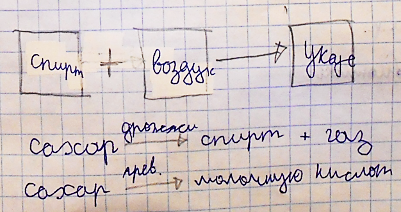 спирт + воздух → уксус
сахар дрожжи → спирт + газ
сахар прев. → молочную кислот